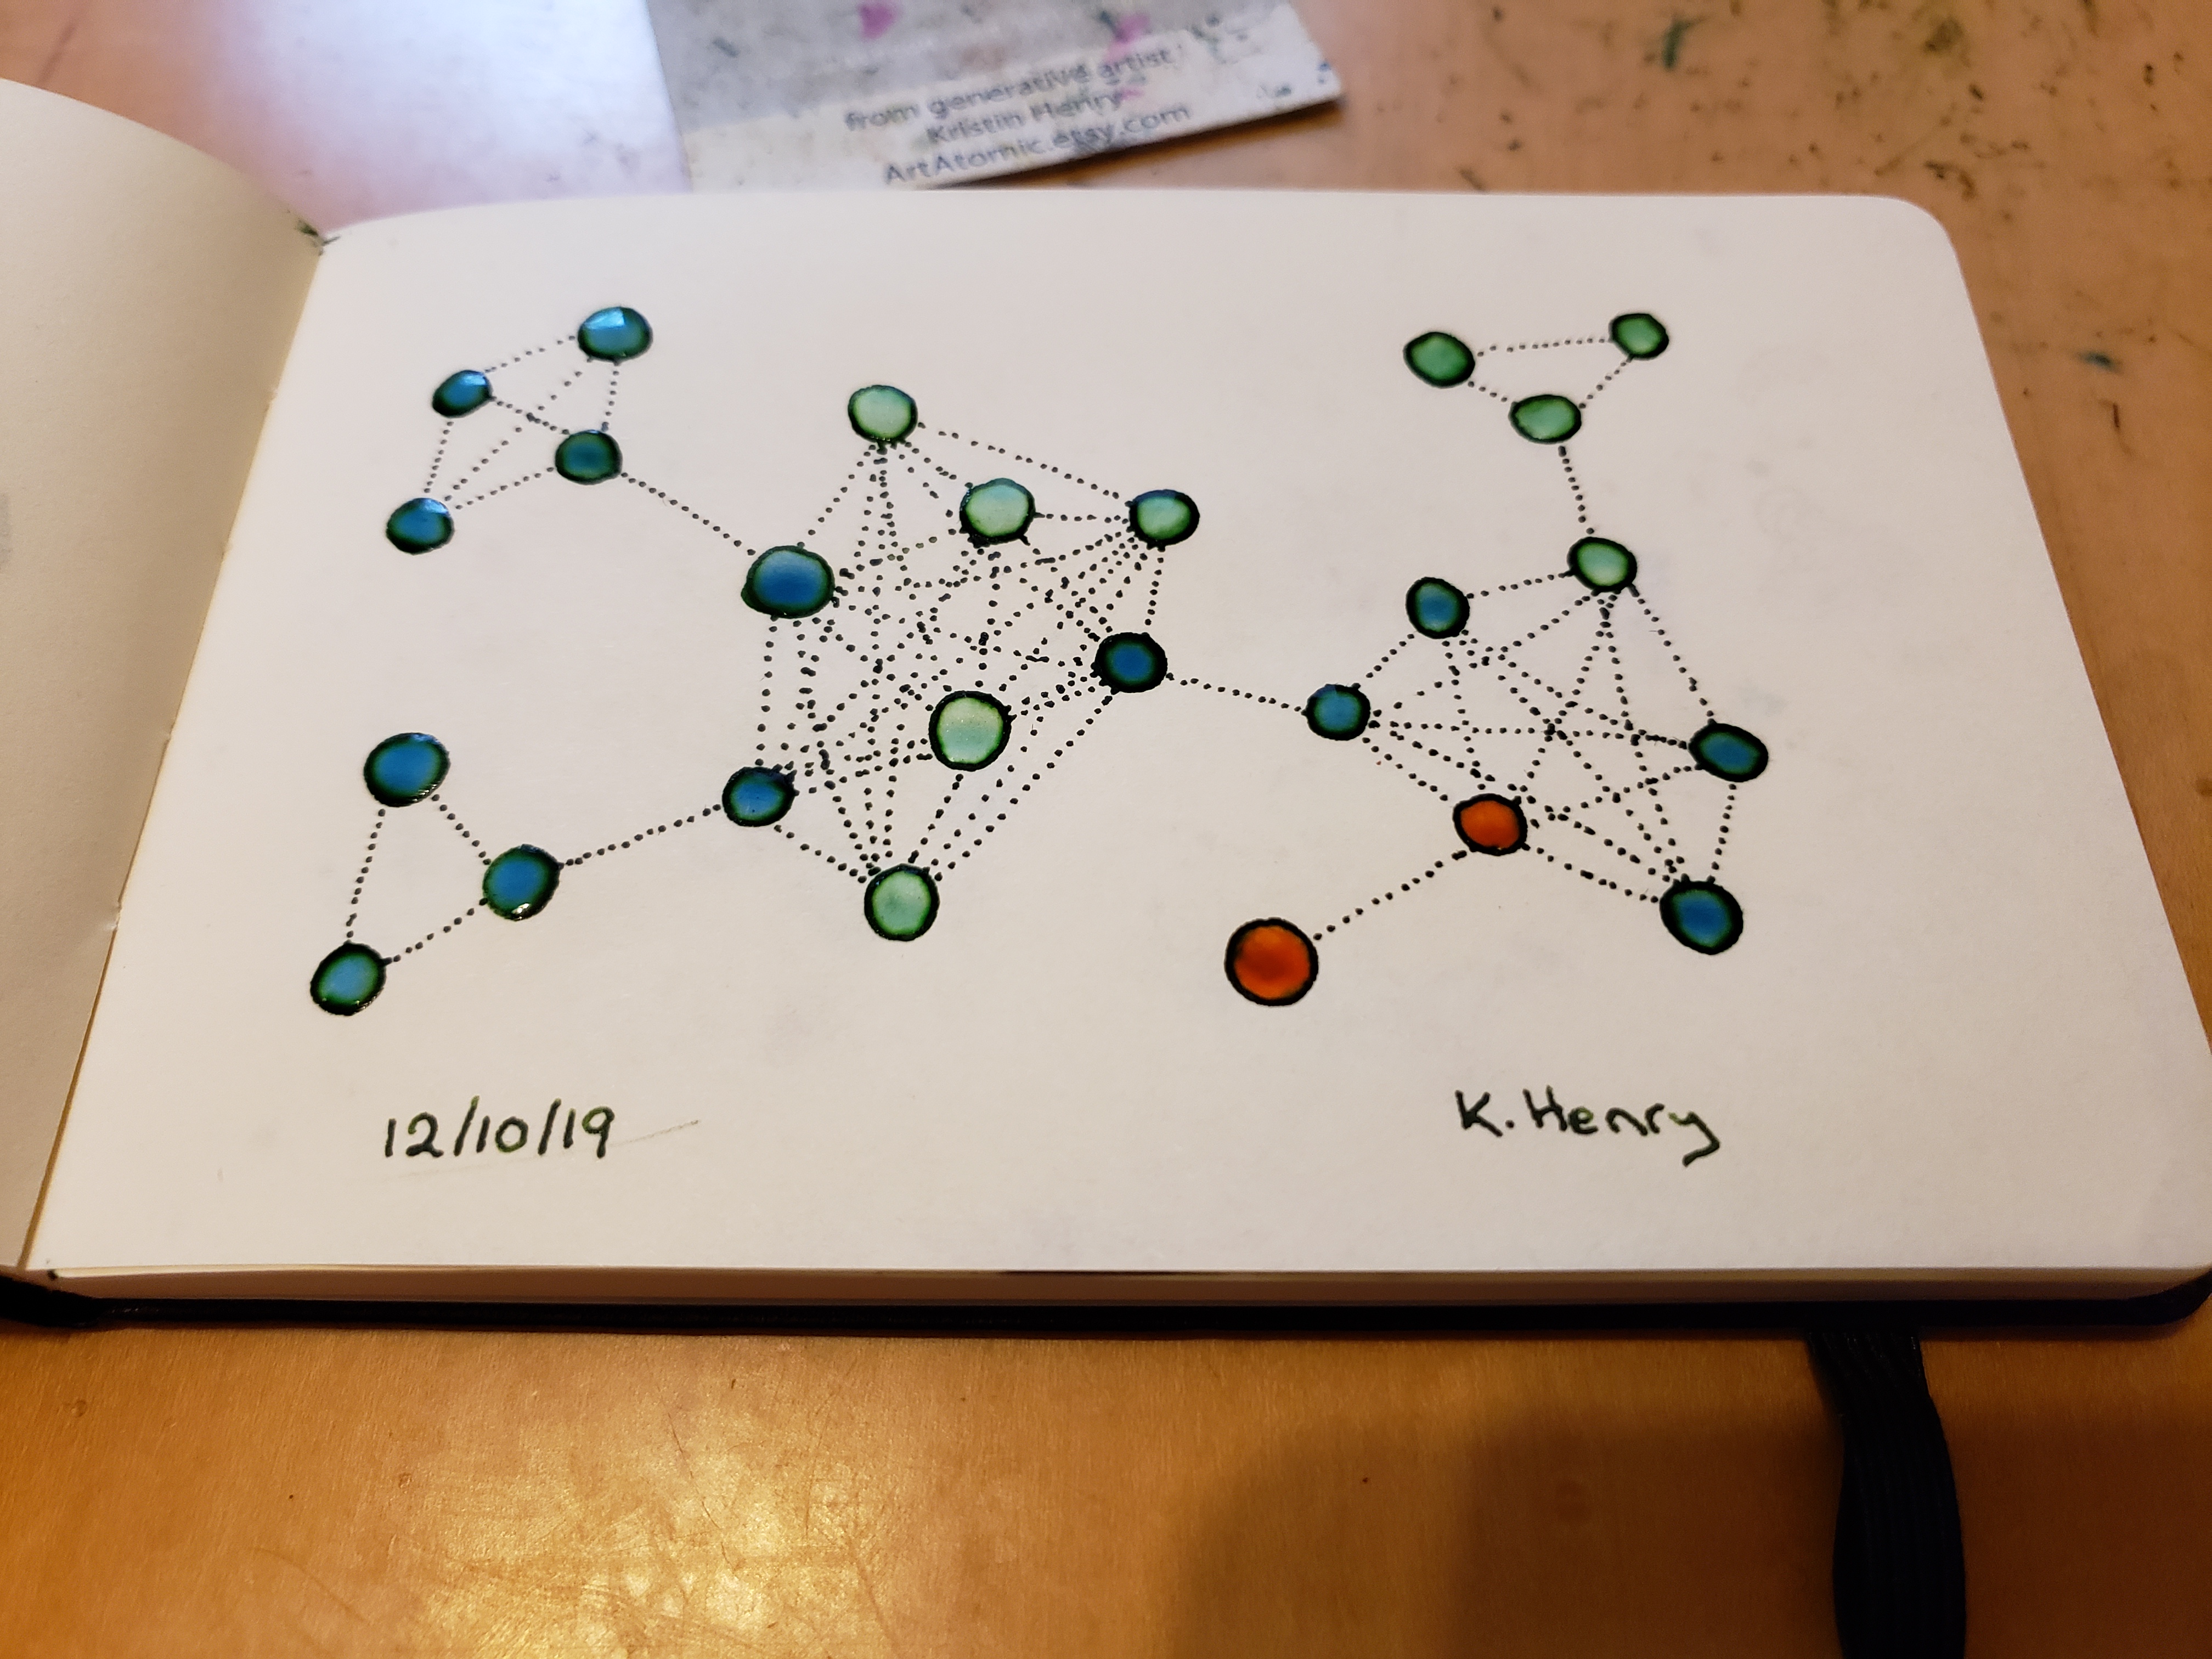 from generative artist
Kristin Henry
ArtAtomic.etsy.com
12/10/19
K. Henry